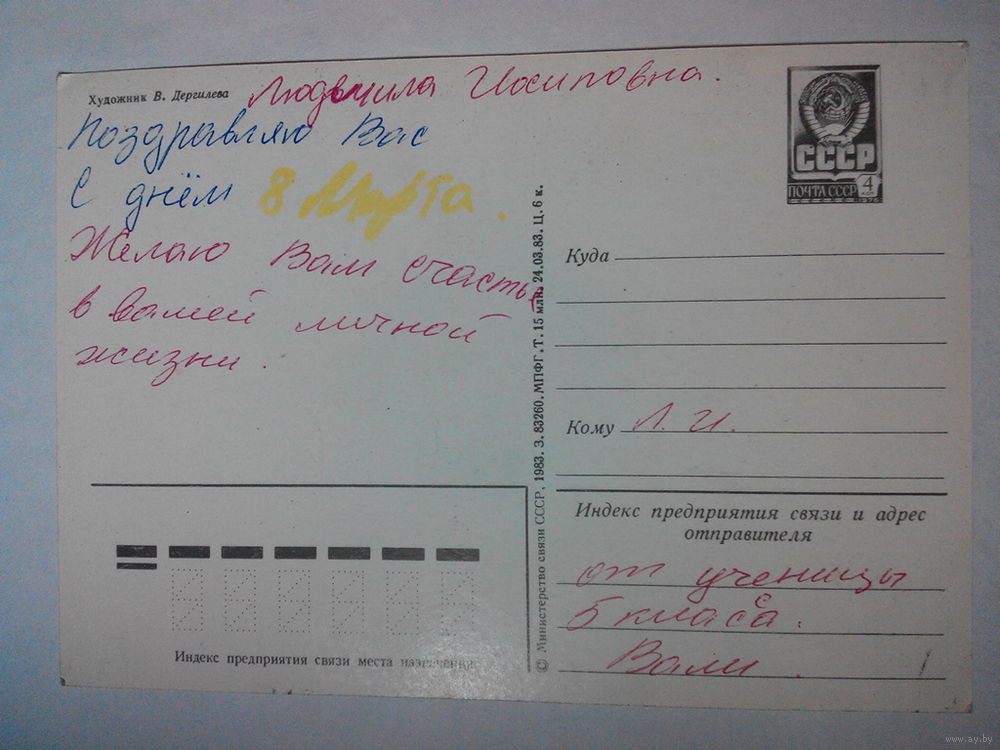 Художник В. Дергилева
Людмила Иосиповна.
Поздравляю Вас
С днём 8 Марта.
Желаю Вам счастья
в вашей личной
жизни.
Индекс предприятия связи места назначения
© Министерство связи СССР, 1983. З. 83260. МПФГ. Т. 15 млн. 24.03.83. Ц. 6 к.
СССР
ПОЧТА СССР 4 КОП
1978
Куда
Кому Л. И.
Индекс предприятия связи и адрес
отправителя
от ученицы
5 класса.
Вали.
www.ay.by